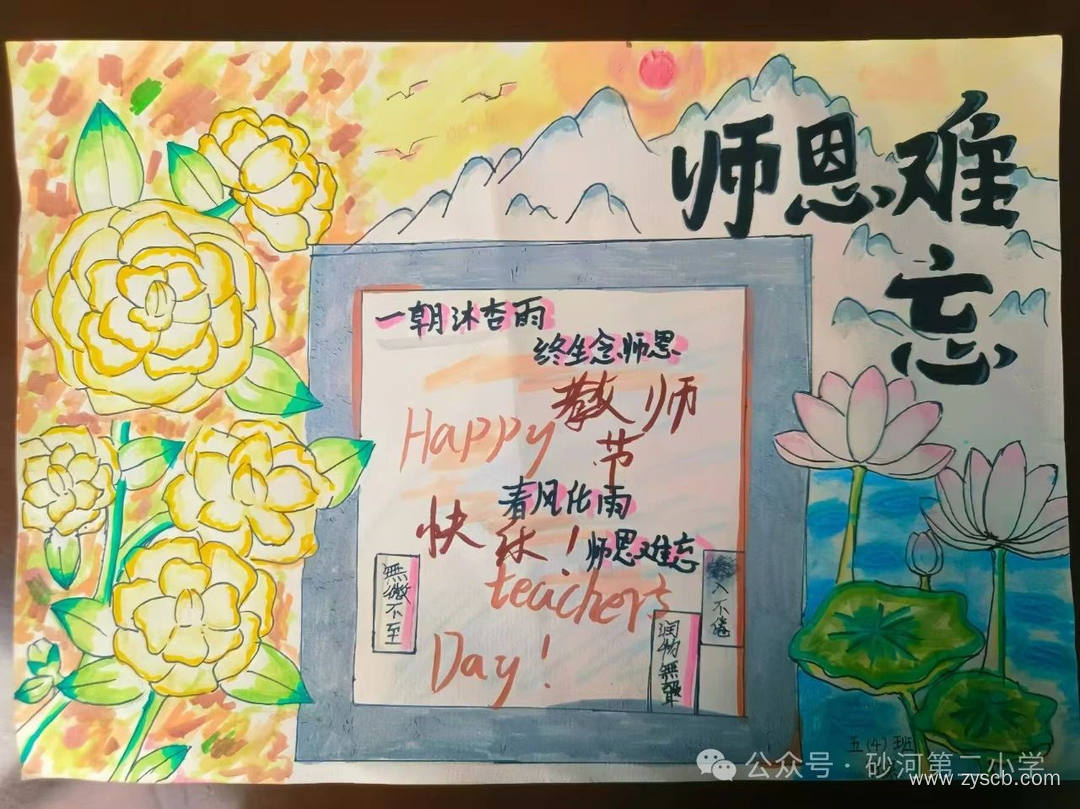 师恩难
忘
一朝沐杏雨
终生念师恩
教师
Happy
节
春风化雨
快
乐！
师恩难忘
teacher's
Day!
無微不至
人不倦
润物無聲
五(4)班
公众号·砂河第二小学
www.zyscb.com